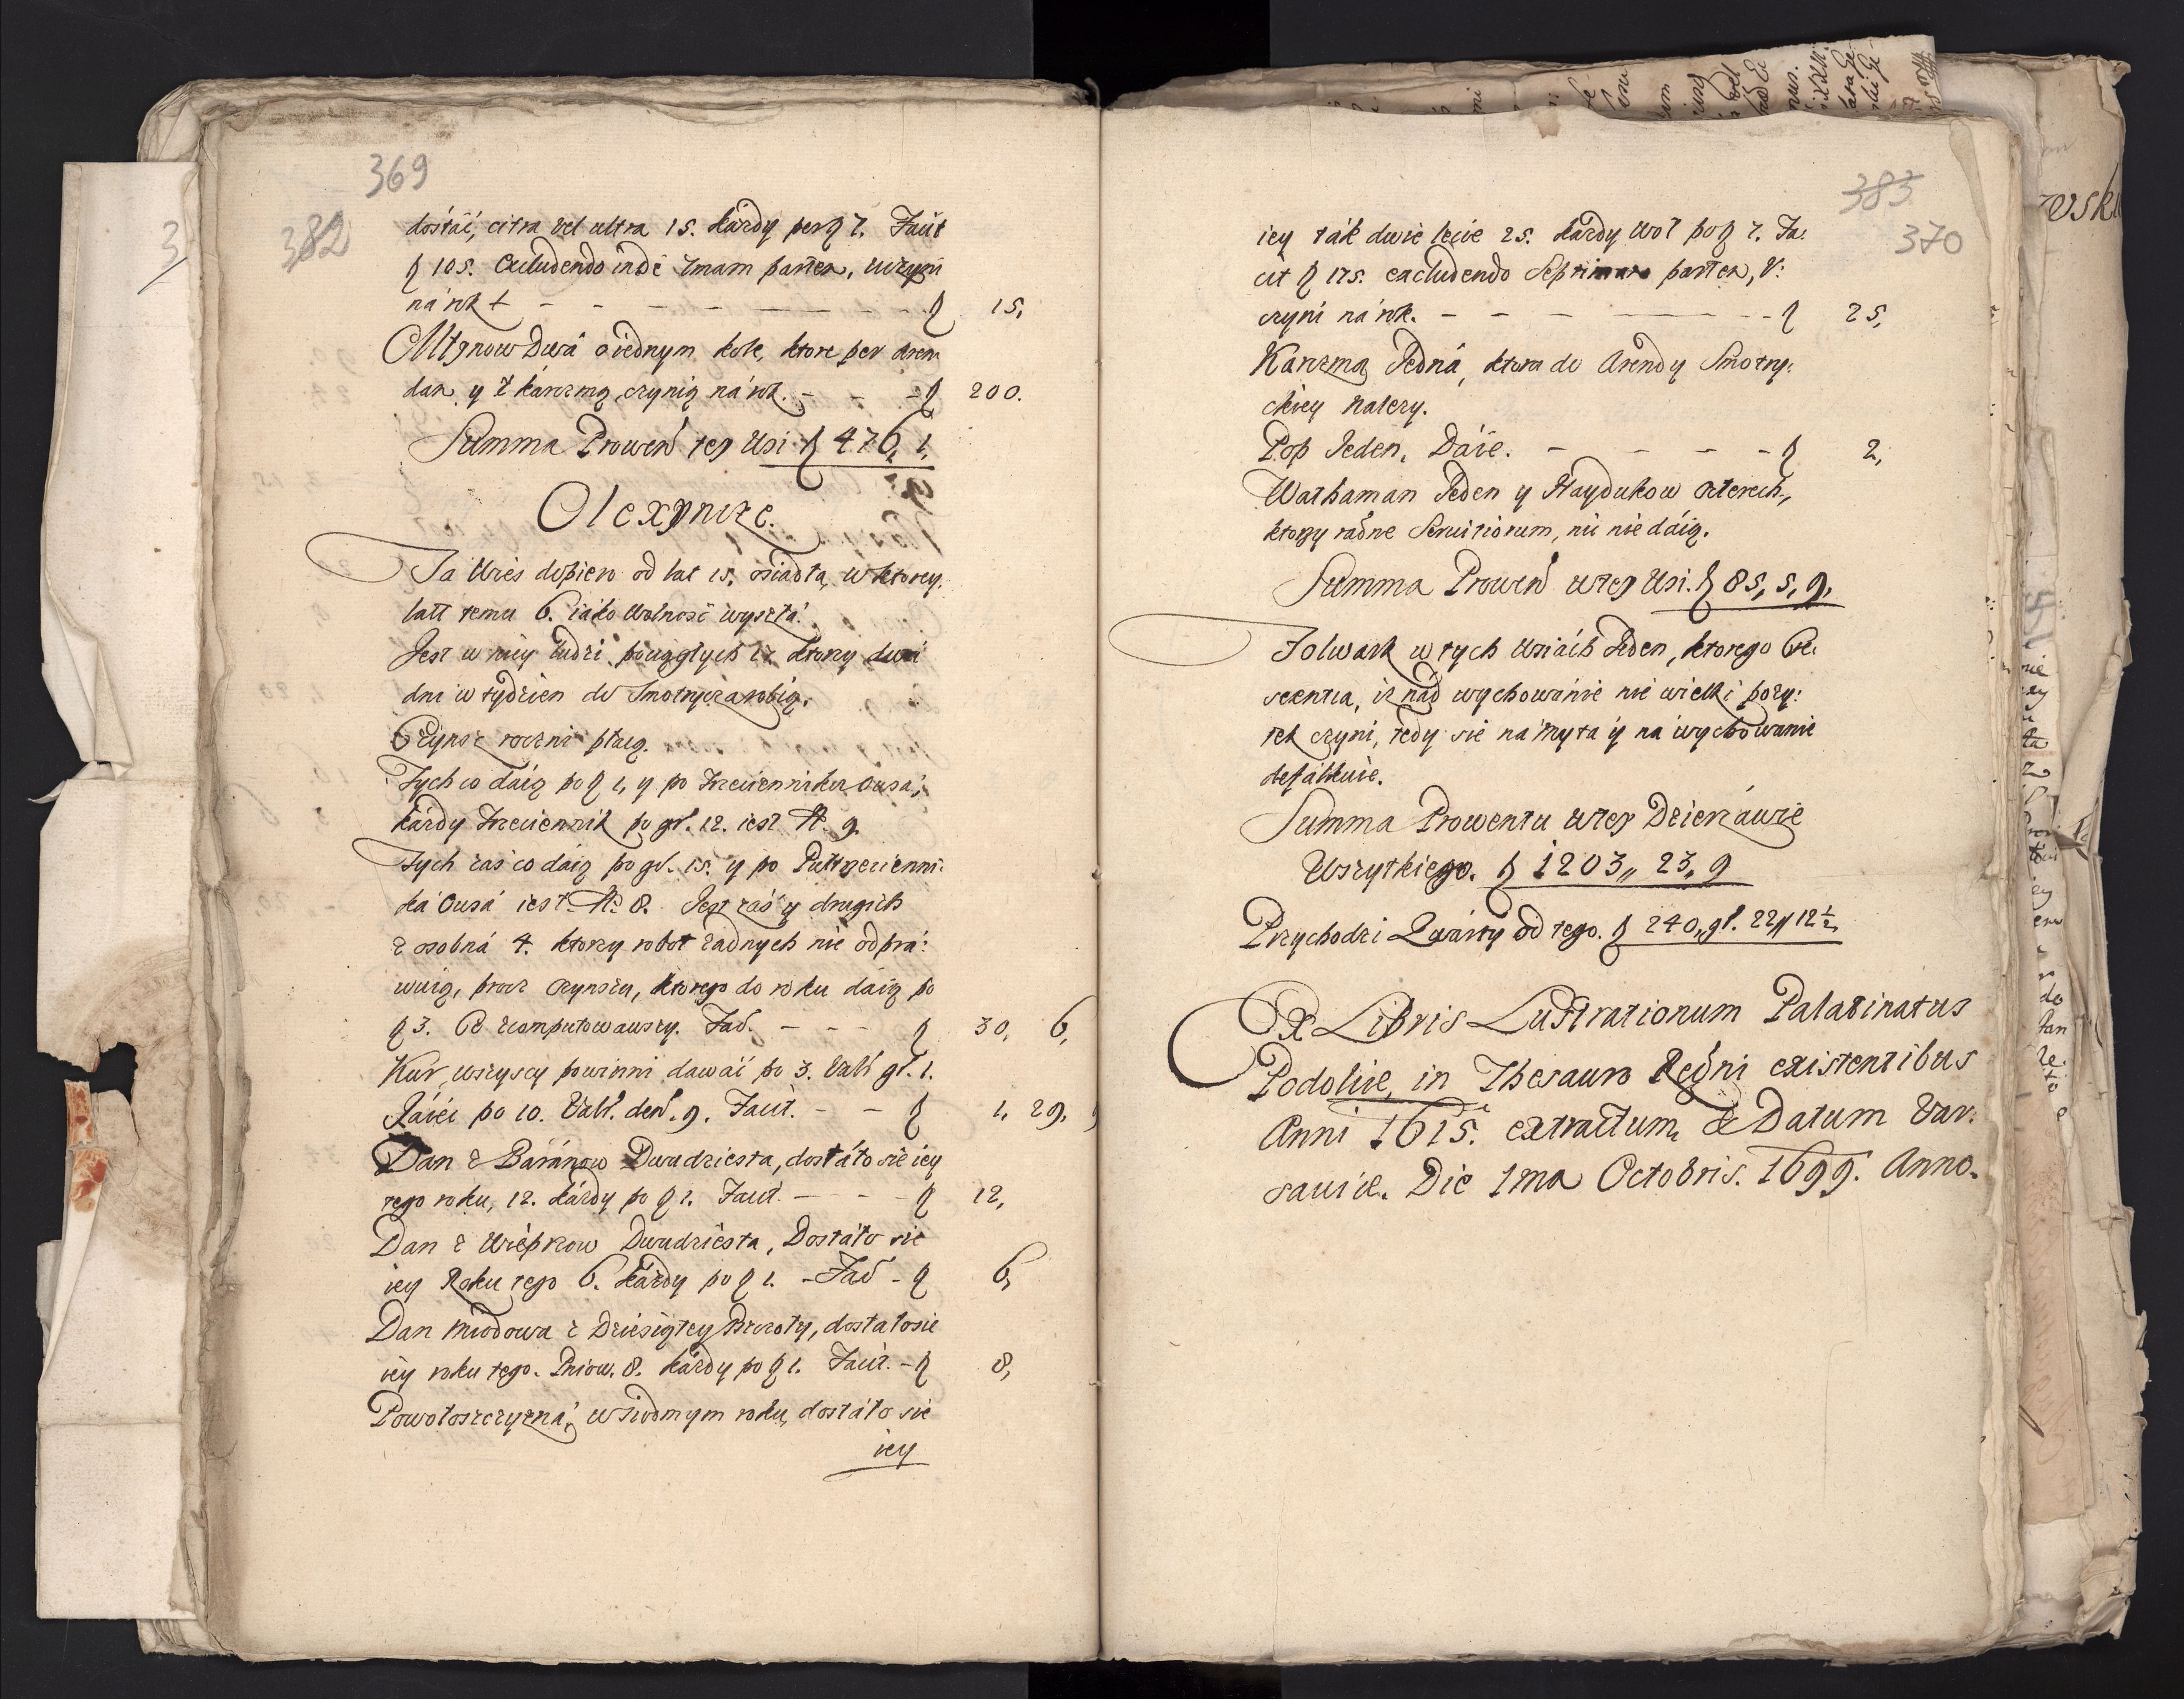 369
382
dostać, citra vel ultra 15. kázdy per ƒ 7. Faċit
ƒ 105. Excludendo inde 7mam partem, uczyni
ná rok + - - - - - ƒ 15,
Młynow Dwá o iednym kole, ktore per Aren-
dam y z kárczmą czynią ná rok. - - - ƒ 200.
Summa Prowent tey Wsi ƒ 476, 1,
Olexynize.
Ta Wies dopiero od lat 15. osiadła, w ktorey
latt temu 6. iáko Wolność wyszłá.
Jest w niey ludzi pociągłych 17. ktorzy dwá
dni w tydzien do Smotrycza robią.
Czynsz roczni płacą.
Tych co dáią po ƒ 1, y po Trzecienniku Owsá,
kázdy Trzeciennik po gł. 12. iest No. 9.
Tych zaś co dáią po gł. 15. y po Pułtrzecienni-
ká Owsá iest No. 8. Jest záś y drugich
z osobná 4. ktorzy robot zadnych nie odprá-
wuią, procz czynszu, ktorego do roku dáią po
ƒ 3. Co zcomputowawszy. Faċ. - - - ƒ 30, 6,
Kur, wszyscy powinni dawáć po 3. Val. gł. 1.
Jáiec po 10. Val. den. 9. Faċit. - - ƒ 1, 29, 9
Dan z Báránow Dwudziesta, dostáło się iey
tego roku, 12. kázdy po ƒ 1. Faċit. - - - ƒ 12,
Dan z Wieprzow Dwudziesta, Dostáło się
iey Roku tego 6. kázdy po ƒ 1. - Faċ - ƒ 6,
Dan Miodowa z Dziesiątey Pszczoły, dostało się
iey roku tego. Pniow. 8. kázdy po ƒ 1. Faċit. - ƒ 8,
Powołoszczyzná, w siodmym roku, dostáło się
iey
383
370
iey ták dwie lecie 25. kázdy woł po ƒ 7. Fa-
cit ƒ 175. excludendo Septimam partem, v-
czyni ná rok. - - - - - ƒ 25,
Karczma Jedná, ktora do Arendy Smotry-
ckiey nalezy.
Pop Jeden, Dáie. - - - - - ƒ 2,
Wathaman Jeden y Haydukow czterech,
ktorzy ratione Seruitiorum, nic nie dáią.
Summa Prowent wtey Wsi. ƒ 85, 5, 9,
Folwark w tych Wsiách Jeden, ktorego Cre-
scentia, iz nád wychowánie nie wielki pozy-
tek czyni, tedy się na Myta y na wychowanie
defálkuie.
Summa Prowentu wtey Dzierzáwie
Wszytkiego. ƒ 1203,, 23, 9
Przychodzi Quárty od tego. ƒ 240,, gł. 22,, 12½
Ex Libris Lustrationum Palatinatus
Podoliæ, in Thesauro Regni existentibus
Anni 1615. extractum, & Datum Var-
saviæ. Die 1ma Octobris. 1699. Anno.